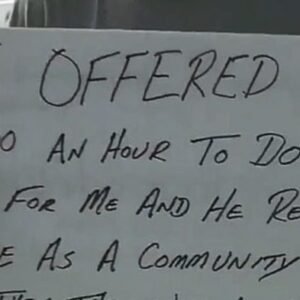 OFFERED
O AN HOUR TO DO
FOR ME AND HE RE
E AS A COMMUNITY